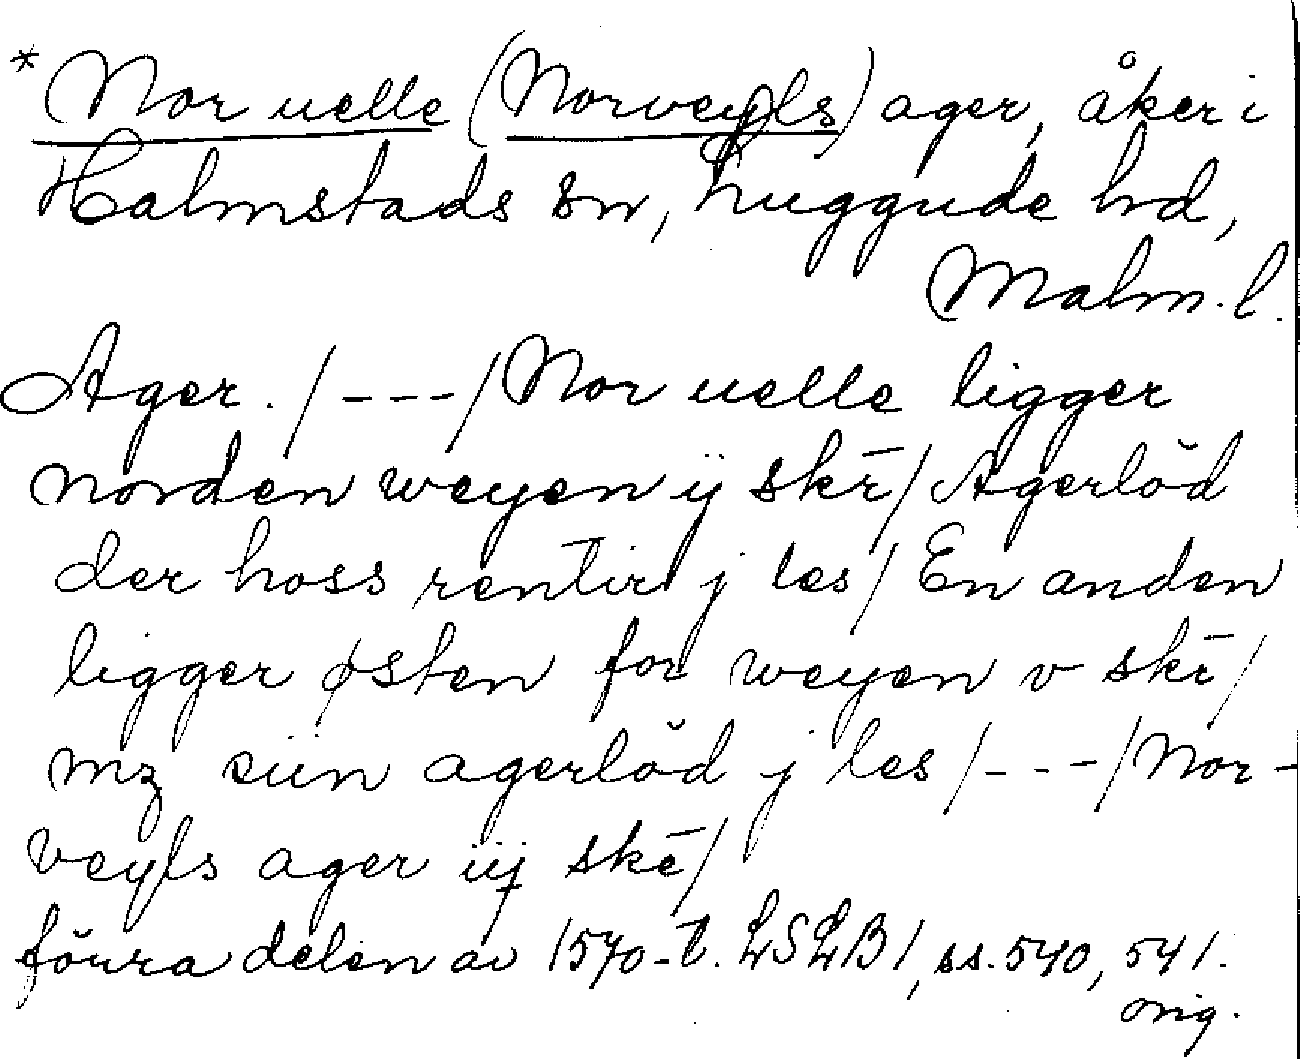 * Nor uelle (Norveyls) ager, åker i
Halmstads sn, Luggude hd,
Malm. l.
Ager. / --- / Nor uelle ligger
norden weyen ij skē / Agerlŏd
der hoss rentir j les / En anden
ligger østen for weyen v skē /
mz siin agerlŏd j les / --- / Nor-
veyls ager iij skē /
förra delen av 1570-t. LSLB1, ss. 540, 541.
orig.